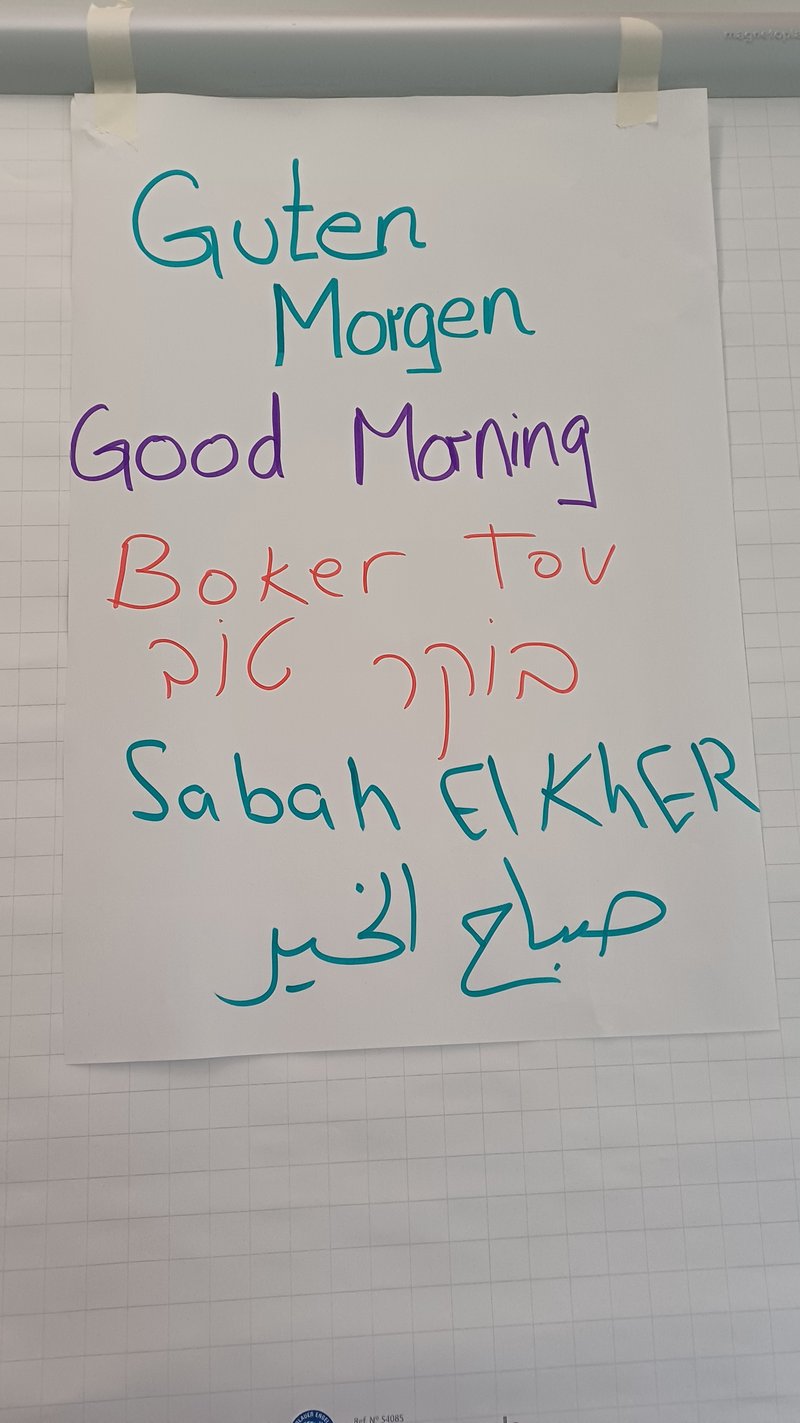 magnetopla
Guten
Morgen
Good Morning
Boker Tov
בוקר טוב
Sabah El KhER
صباح الخير
Ref. Nº 54085